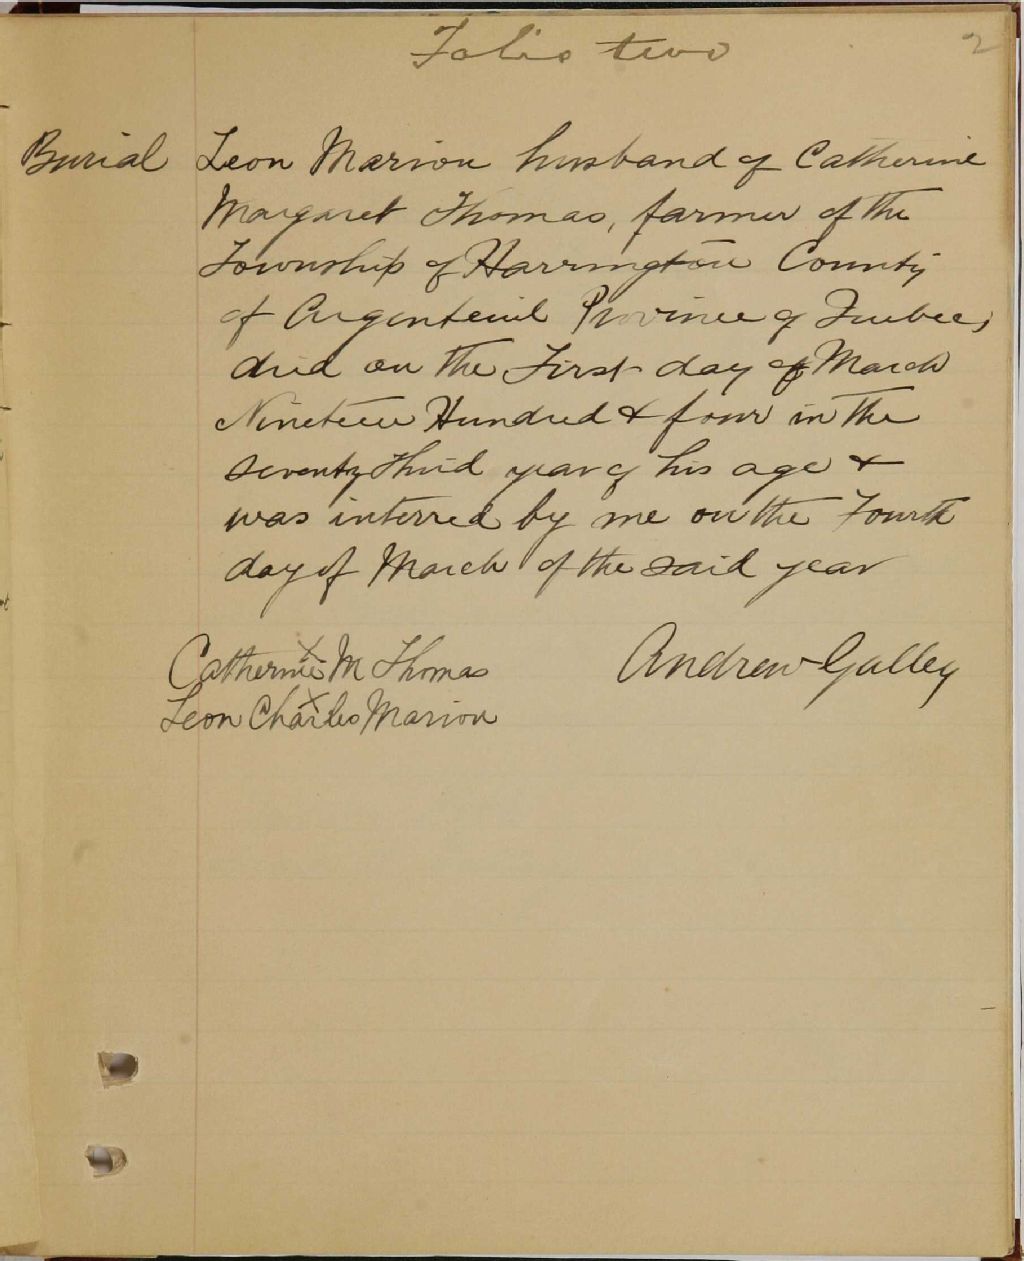 Folio two 2
Burial Leon Marion husband of Catherine
Margaret Thomas, farmer of the
Township of Harrington County
of Argenteuil Province of Quebec,
died on the First day of March
Nineteen Hundred & four in the
seventy third year of his age &
was interred by me on the Fourth
day of March of the said year
Catherine X M Thomas Andrew Galley
Leon Charles X Marion